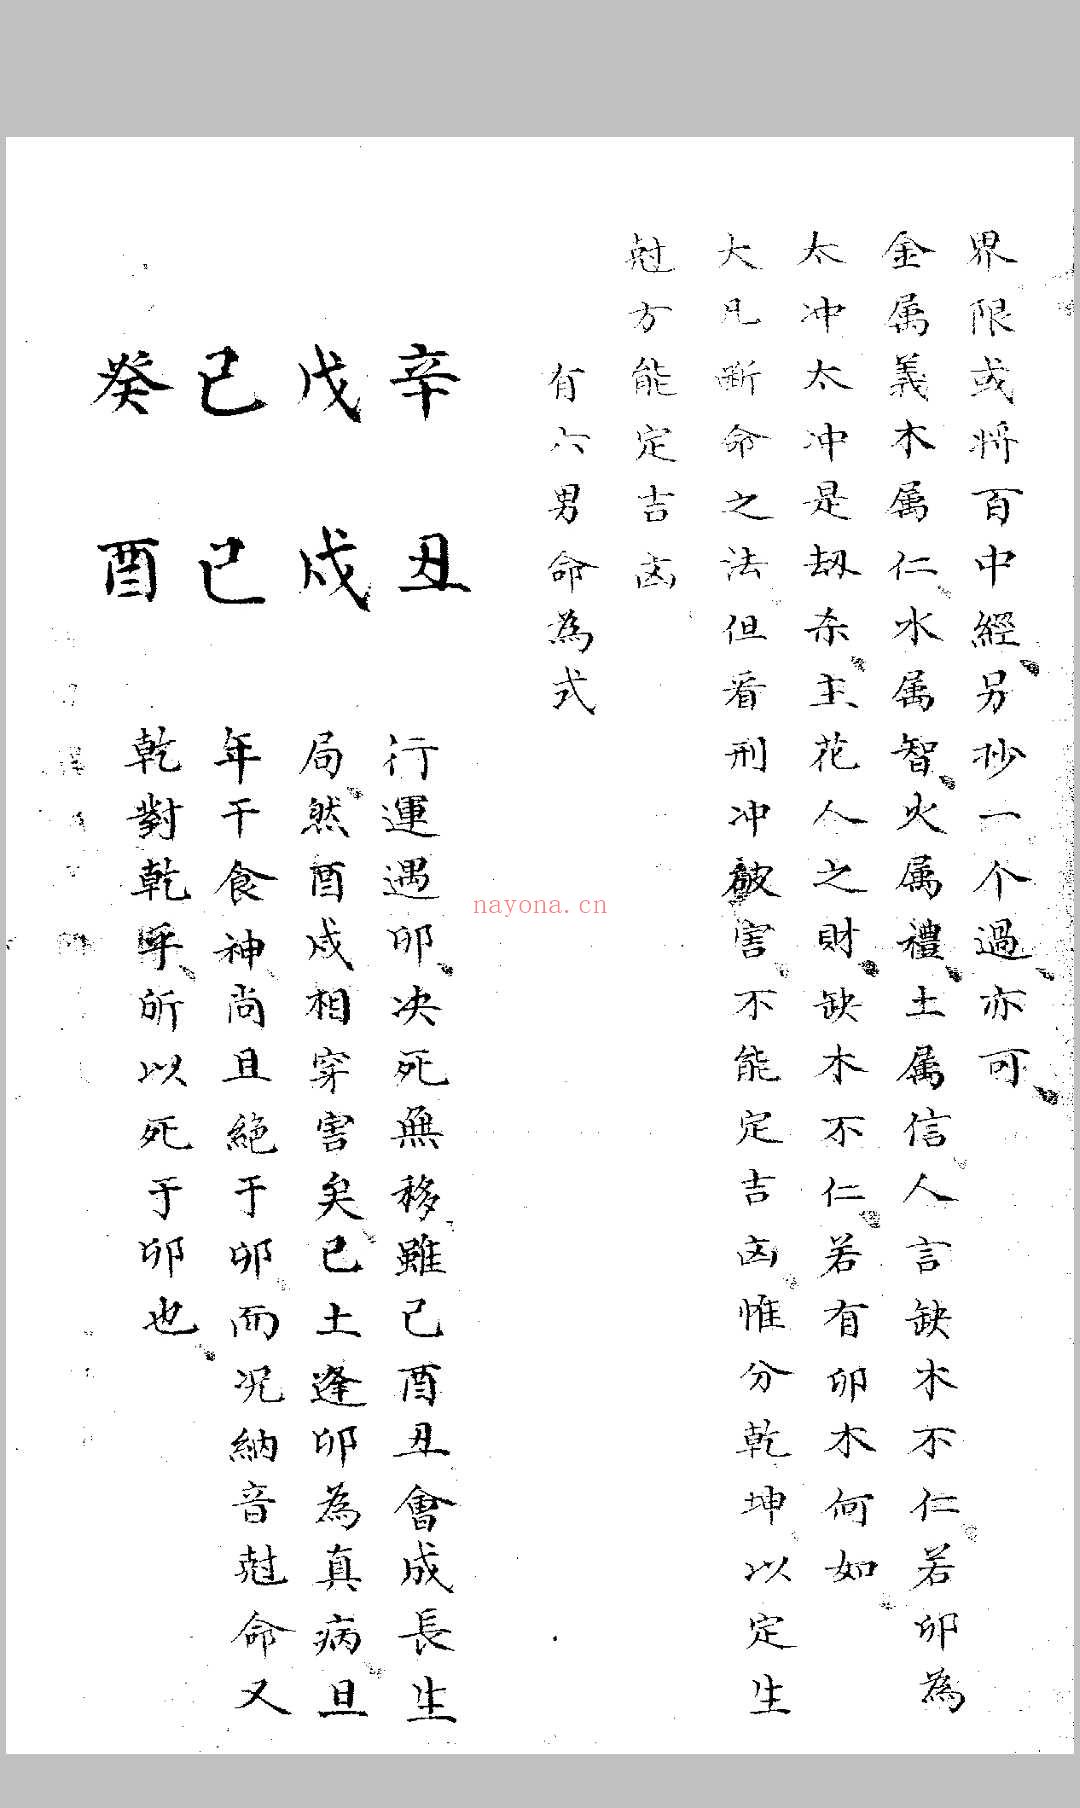 界限或将百中經另抄一个過亦可
金属義木属仁水属智火属禮土属信人言缺木不仁若卯為
太冲太冲是刼杀主花人之財缺木不仁若有卯木何如
大凡断命之法但看刑冲破害不能定吉凶惟分乾坤以定生
尅方能定吉凶
有六男命為式
辛丑
戊戌
己巳
癸酉
行運遇卯决死無移雖己酉丑會成長生
局然酉戌相穿害矣己土逢卯為真病且
年干食神尚且絶于卯而况納音尅命又
乾對乾乎所以死于卯也
nayona.cn